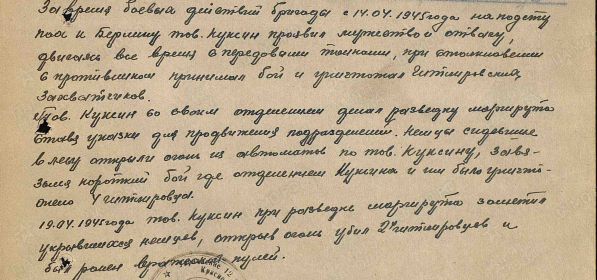 За время боевых действий бригады с 14.04.1945 года на подсту
пах к Берлину тов. Куксин проявил мужество и отвагу,
двигаясь все время с передовыми танками, при столкновении
с противником принимал бой и уничтожал гитлеровских
захватчиков.
Тов. Куксин со своим отделением делал разведку маршрута
ставя указки для продвижения подразделений. Немцы сидевшие
в лесу открыли огонь из автоматов по тов. Куксину, завя-
зался короткий бой где отделением Куксина и им было уничт-
ожено 4 гитлеровца.
19.04.1945 года тов. Куксин при разведке маршрута заметил
укрывшихся немцев, открыв огонь убил 2х гитлеровцев и
был ранен вражеской пулей.